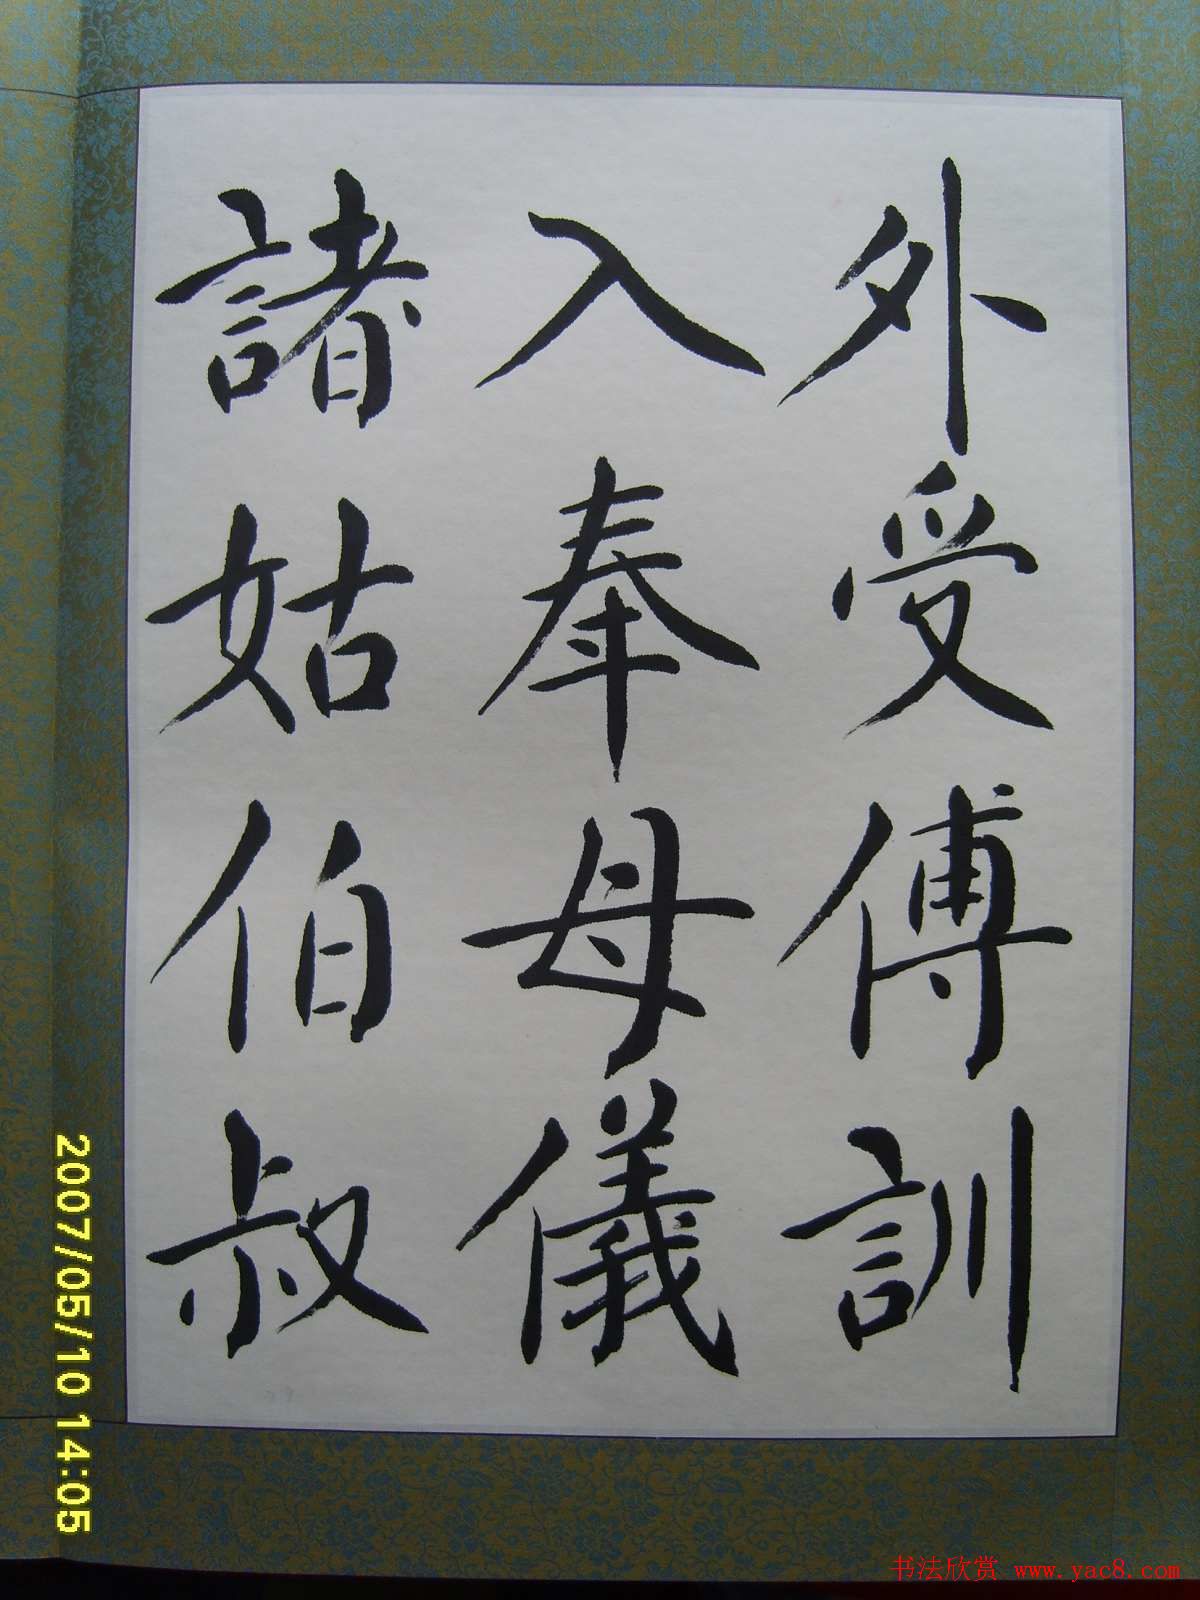 外受傅訓
入奉母儀
諸姑伯叔
2007/05/10 14:05
书法欣赏 www.yac8.com